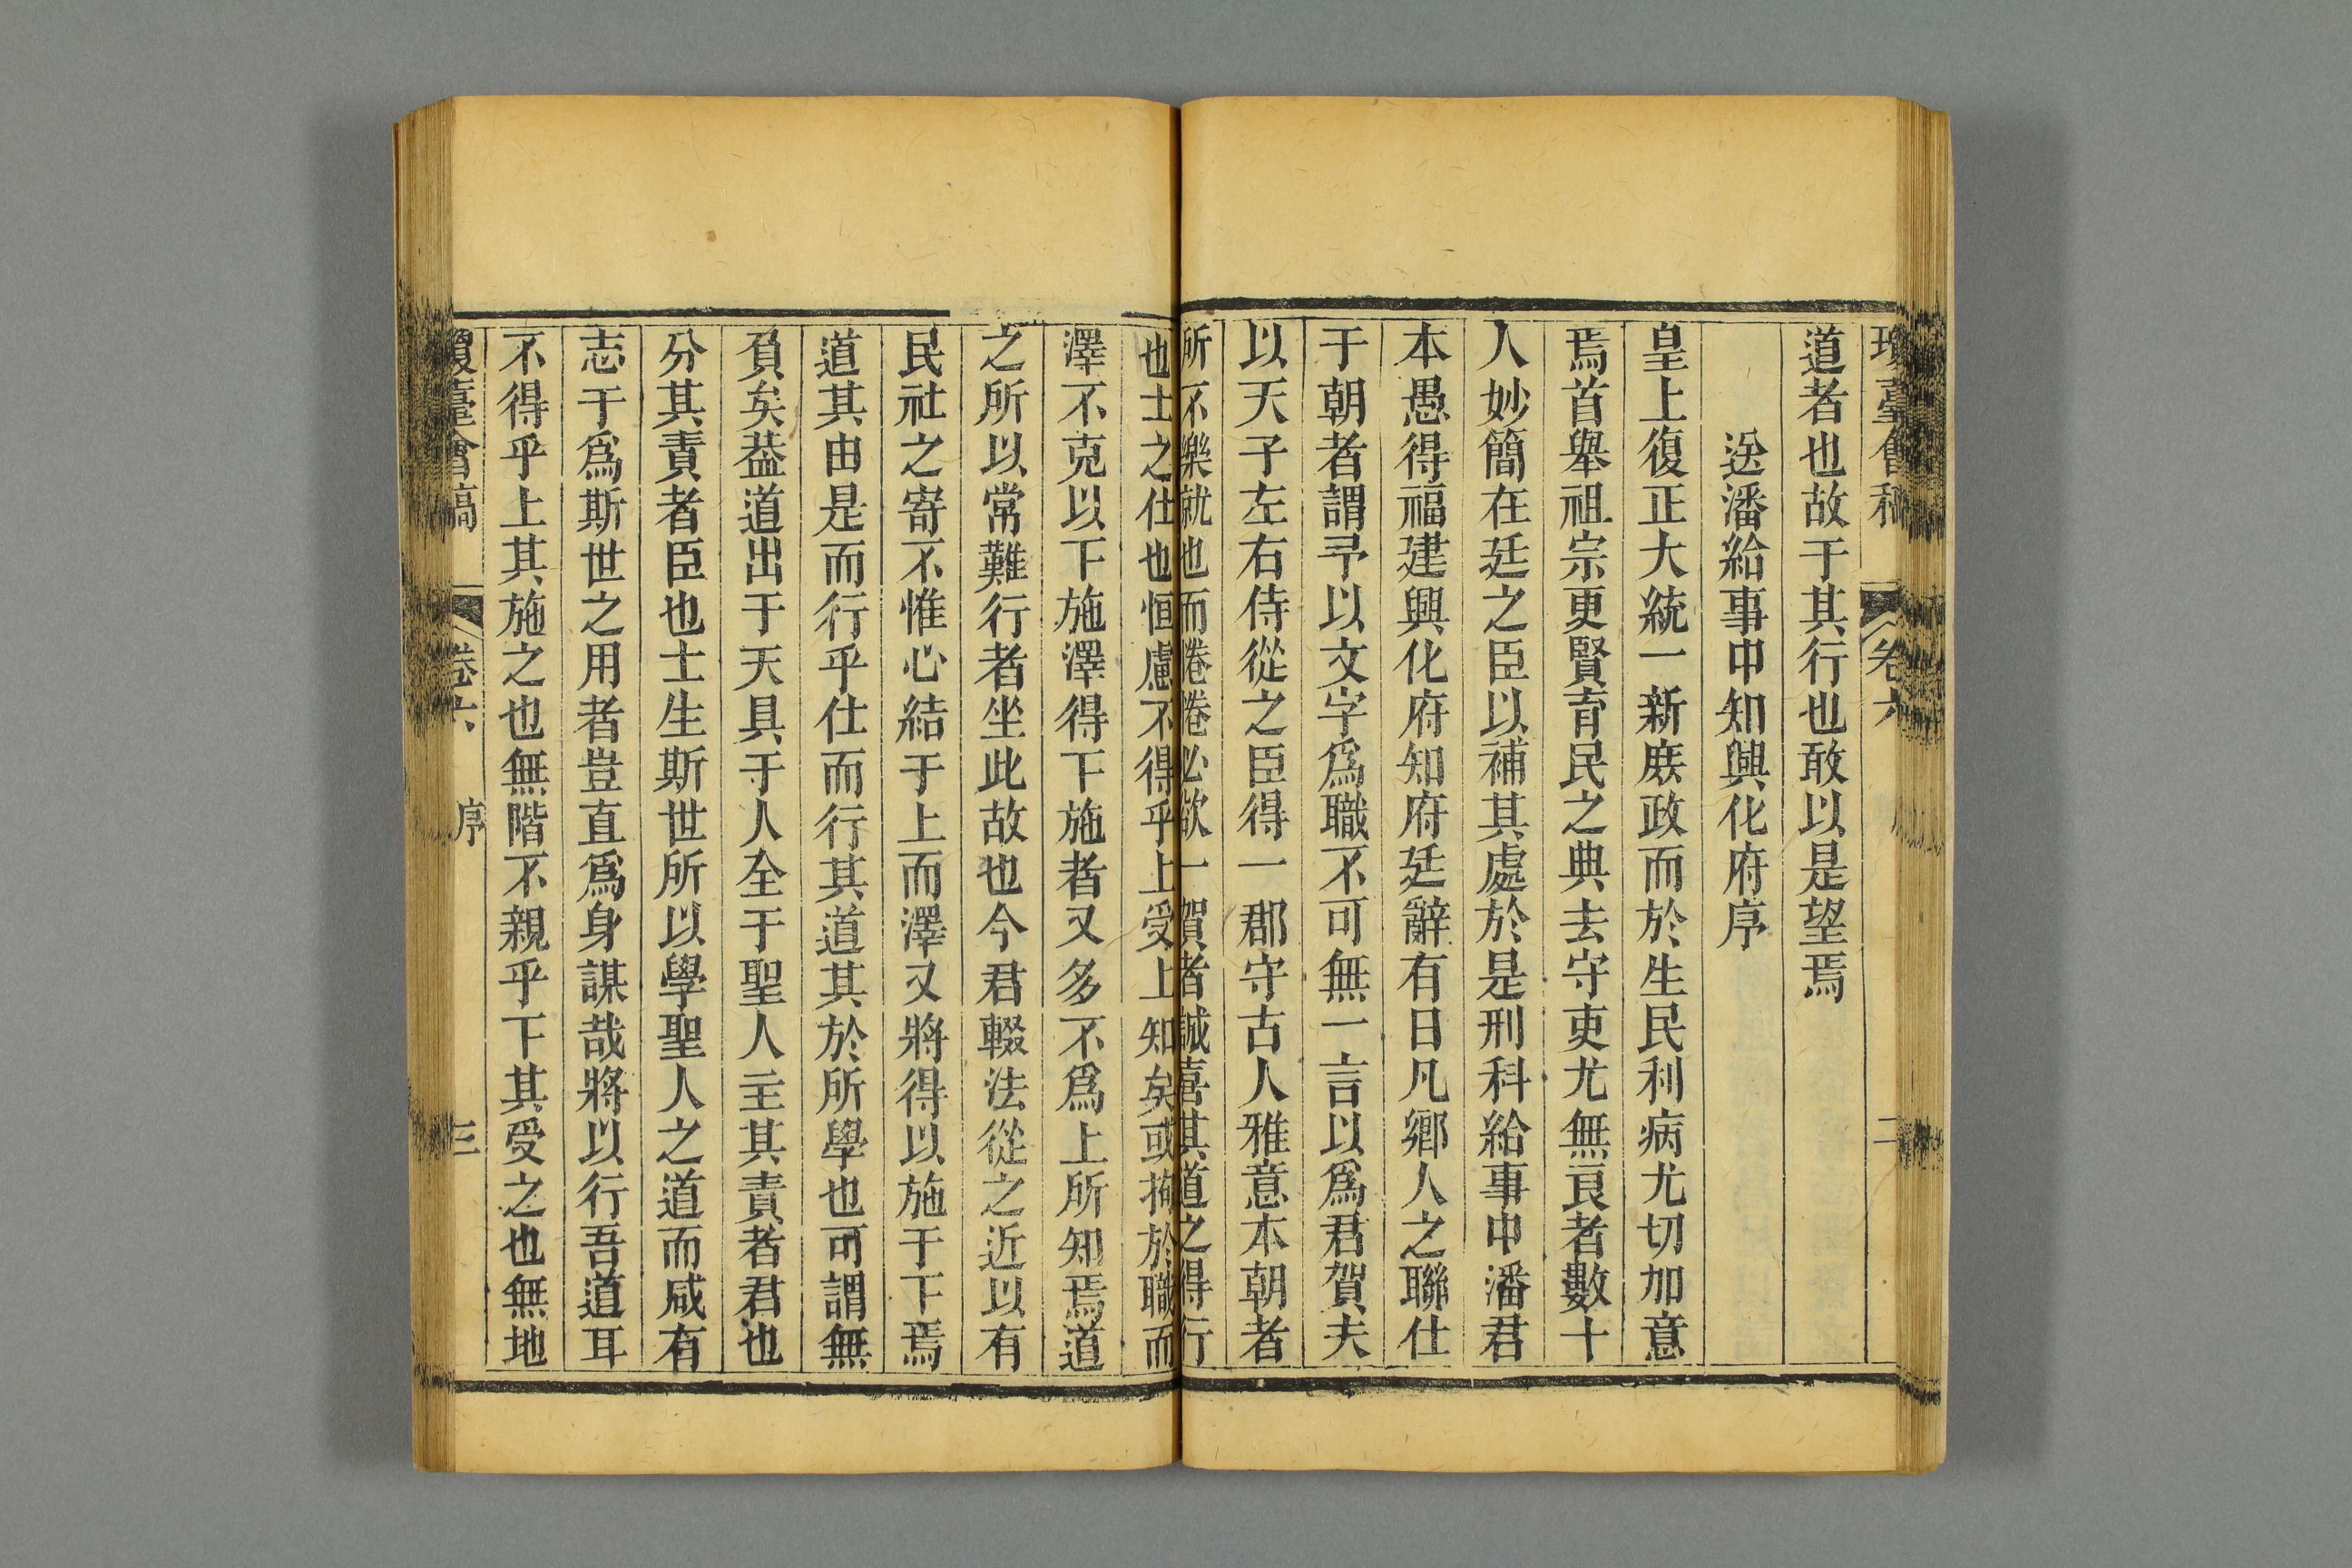 瓊臺會稿 卷六 二
道者也故于其行也敢以是望焉
送潘給事中知興化府序
皇上復正大統一新庶政而於生民利病尤切加意
焉首舉祖宗更賢育民之典去守吏尤無良者數十
人妙簡在廷之臣以補其處於是刑科給事中潘君
本愚得福建興化府知府廷辭有日凡鄉人之聯仕
于朝者謂予以文字爲職不可無一言以爲君賀夫
以天子左右侍從之臣得一郡守古人雅意本朝者
所不樂就也而惓惓必欲一賀者誠喜其道之得行
也士之仕也恒慮不得乎上受上知矣或拘於職而
澤不克以下施澤得下施者又多不爲上所知焉道
之所以常難行者坐此故也今君輟法從之近以有
民社之寄不惟心結于上而澤又將得以施于下焉
道其由是而行乎仕而行其道其於所學也可謂無
負矣葢道出于天具于人全于聖人主其責者君也
分其責者臣也士生斯世所以學聖人之道而咸有
志于爲斯世之用者豈直爲身謀哉將以行吾道耳
不得乎上其施之也無階不親乎下其受之也無地
瓊臺會稿 卷六 序 三